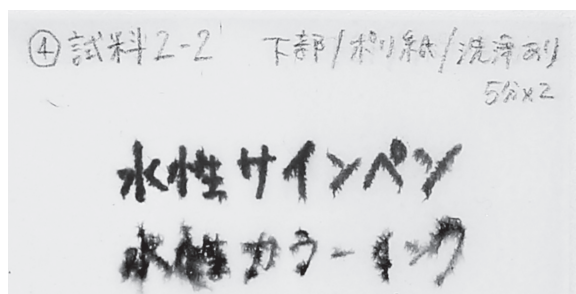 ④試料2-2 下部/ポリ紙/洗浄あり
5分×2
水性サインペン
水性カラーインク